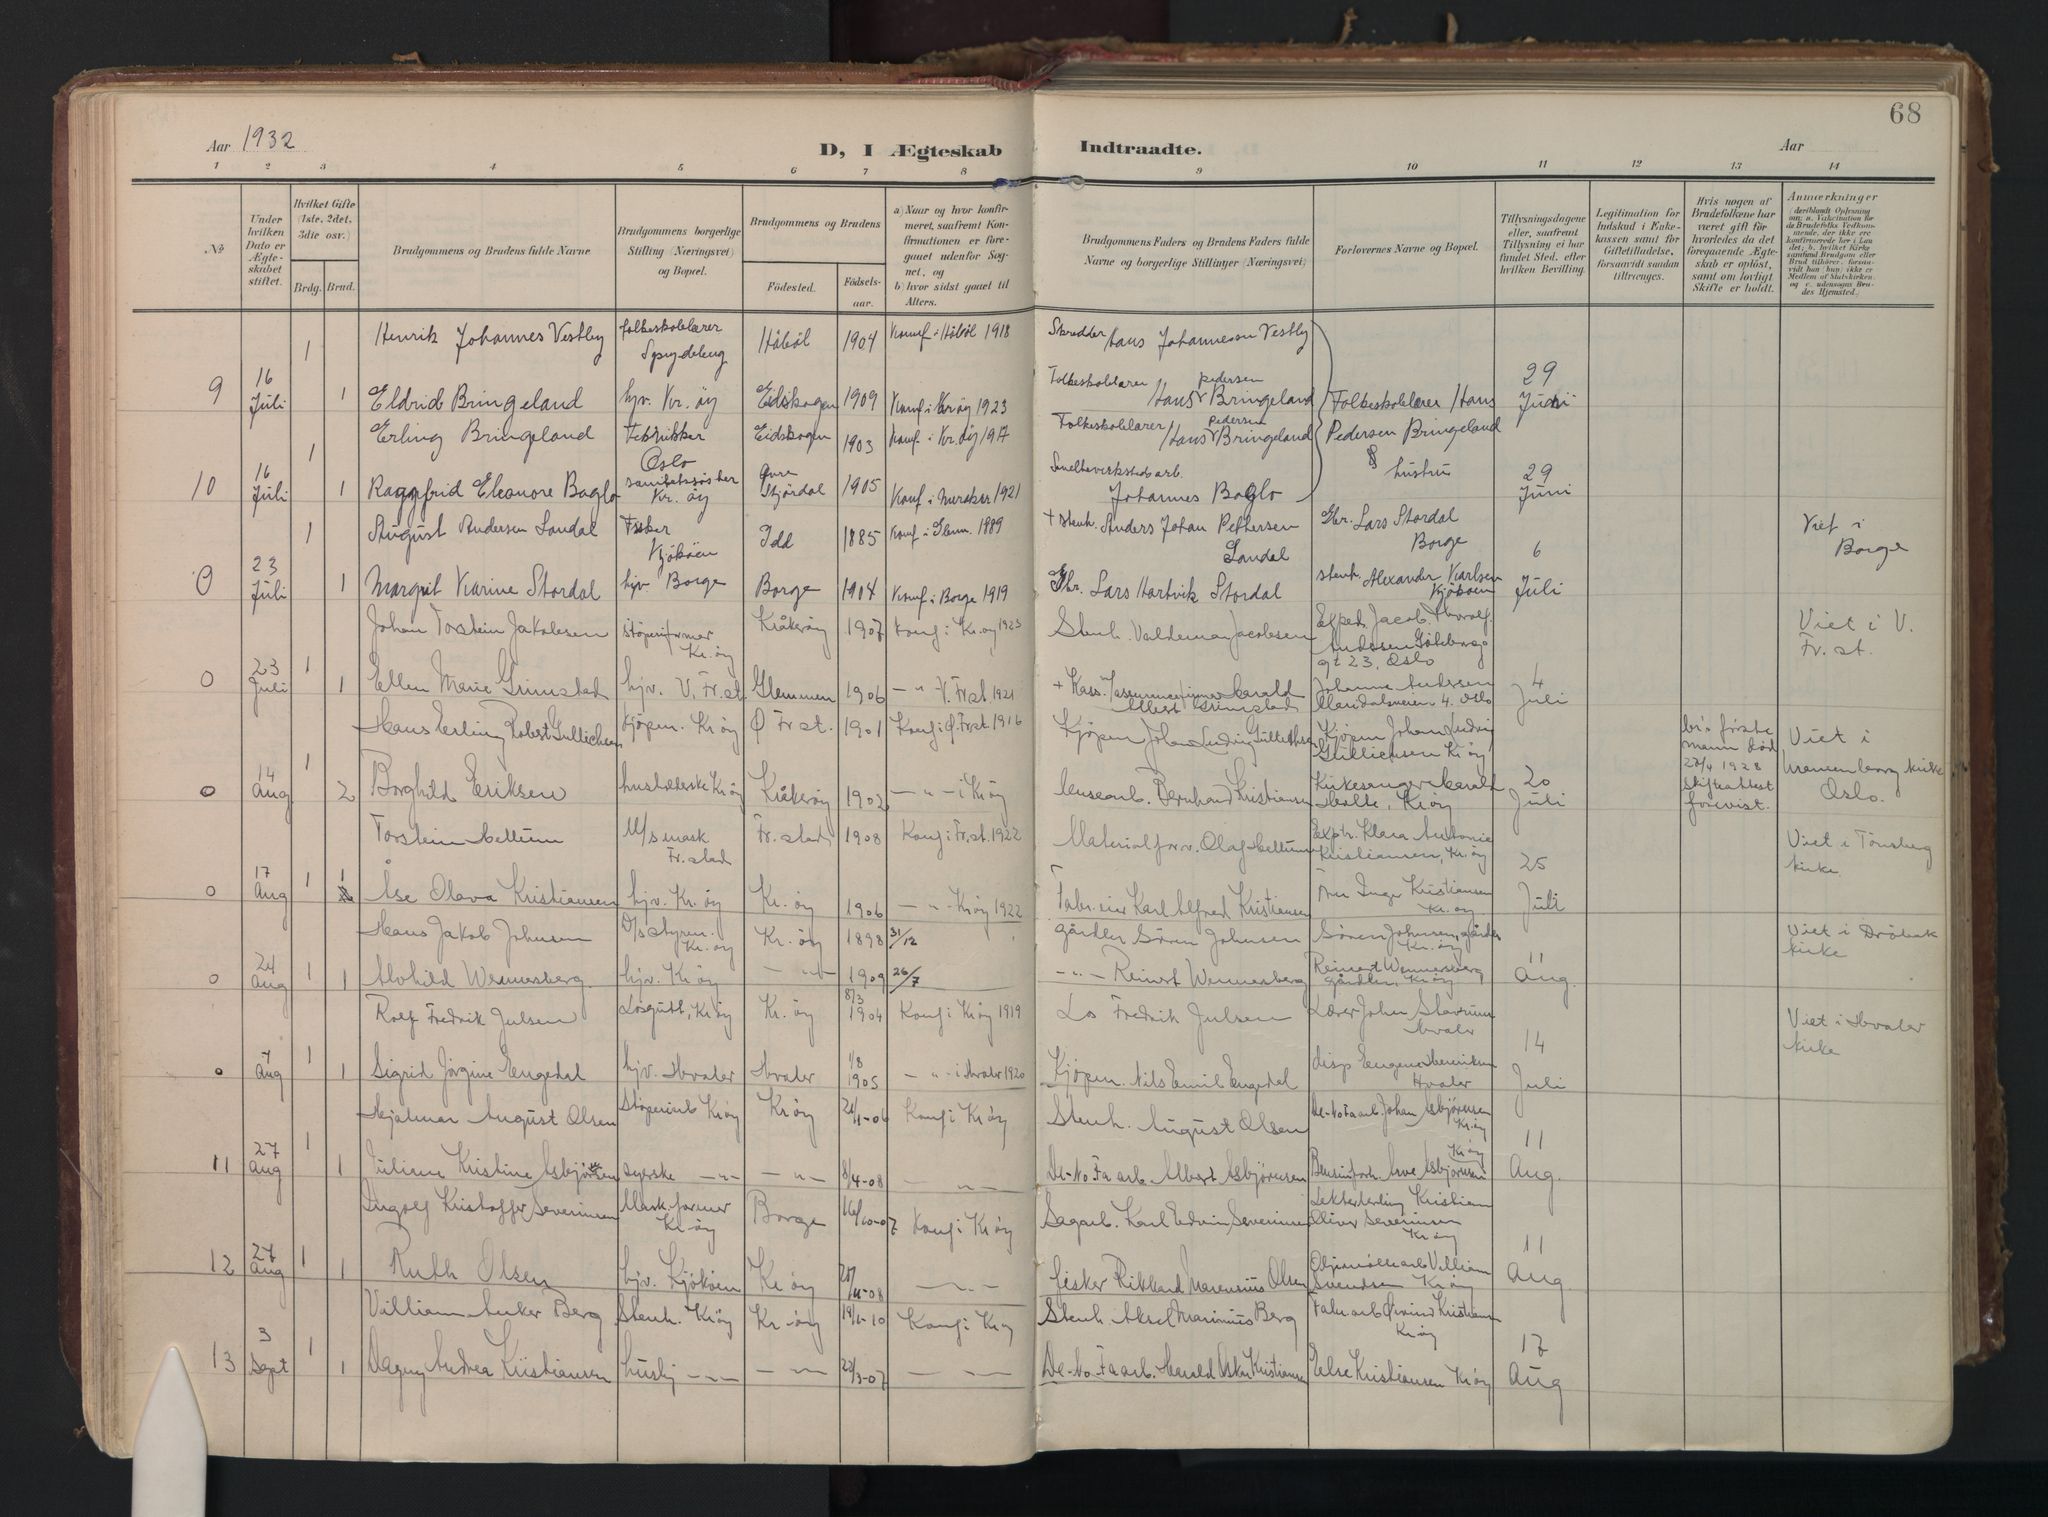 68
Aar 1932
D, I Ægteskab Indtraadte.
Aar
1 2 3 4 5 6 7 8 9 10 11 12 13 14
No
Under hvilken Dato er Ægteskabet stiftet.
Hvilket Gifte (1ste, 2det, 3die osv.)
Brdg. Brud.
Brudgommens og Brudens fulde Navne
Brudgommens borgerlige Stilling (Næringsvei) og Bopæl.
Brudgommens og Brudens
Fødested. Fødselsaar.
a) Naar og hvor konfirmeret, saafremt Konfirmationen er foregaaet udenfor Sognet, og
b) hvor sidst gaaet til Alters.
Brudgommens Faders og Brudens Faders fulde Navne og borgerlige Stillinger (Næringsvei)
Forlovernes Navne og Bopæl.
Tillysningsdagene eller, saafremt Tillysning ei har fundet Sted, efter hvilken Bevilling.
Legitimation for Indskud i Enkekassen samt for Giftetilladelse, forsaavidt saadan tiltrænges.
Hvis nogen af Brudefolkene har været gift før hvorledes da det foregaaende Ægteskab er opløst, samt om lovligt Skifte er holdt.
Anmærkninger
1 Henrik Johannes Vestby folkeskolelærer Spydeberg Håbøl 1904 Konf. i Håbøl 1918 Skredder Hans Johannessen Vestby
9 16 Juli 1 Eldrid Bringeland hjv. Kr.øy Eidskogen 1909 Konf i Kr.øy 1923 Folkeskolelærer Hans Pedersen Bringeland Folkeskolelærer Hans 29 Juni
1 Erling Bringeland Oslo Eidskogen 1903 Konf. i Kr.øy 1917 Folkeskolelærer Hans Pedersen Bringeland Pedersen Bringeland
10 16 Juli 1 Ragnfrid Eleonore Baglo Kr. øy Stjørdal 1905 Konf. i Meraker 1921 Smelteverksteds arb. Johannes Baglo & hustru 29 Juni
1 August Andersen Landal Fisker Kjøkøen Idd 1885 Konf. i Glem. 1889 + Stenh. Anders Johan Pettersen Landal Gbr. Lars Stordal Borge Viet i Borge
0 23 Juli 1 Margit Karine Stordal hjv Borge Borge 1904 Konf. i Borge 1919 Gbr. Lars Hartvik Stordal Stenh. Alexander Karlsen Kjøkøen 6 Juli
Johan Torstein Jakobsen Støperiformer Kr.øy Kråkerøy 1907 Konf. i Kr.øy 1923 Stenh. Valdemar Jacobsen Exped. Jacob Thorolf Andersen Göteborg gt 23, Oslo Viet i V. Fr.st.
0 23 Juli 1 1 Ellen Marie Grimstad hjv. V. Fr.st. Glemmen 1906 - " - V. Fr.st. 1921 Johanne Andersen Maridalsveien 4. Oslo 4 Juli
Hans Erling Robert Gullichsen Kjøpm. Kr.øy Ø Fr.st. 1901 Konf. i Ø. Fr.st. 1916 Kjøpm Johan Ludvig Gullichsen Kjøpm Johan Ludvig Gullichsen Kr.øy br's første mann død 22/4 1928 skifteattest forevist. Viet i Uranienborg kirke Oslo.
0 14 Aug 1 2 Borghild Eriksen husholderske Kr.øy Kråkerøy 1902 - " - i Kr.øy Bernhard Kristiansen Kirkesanger Harald Holte, Kr.øy 20 Juli
Torstein Mellum M/s mask Fr.stad Fr.stad 1908 Konf i Fr.st. 1922 Materialforv. Olaf Mellum Exptr. Klara Antonie Kristiansen, Kr.øy Viet i Tønsberg kirke
0 17 Aug 1 1 Åse Olava Kristiansen hjv. Kr.øy Kr.øy 1906 - " - Kr.øy 1922 Fabr. eier Karl Alfred Kristiansen Inge Kristiansen Kr.øy 25 Juli
Hans Jakob Johnsen O/s styrm. Kr.øy Kr.øy 1898 31/12 gårdbr Søren Johnsen Søren Johnsen, gårdbr Kr.øy Viet i Drøbak kirke
0 24 Aug 1 1 Alvhild Wennersberg hjv. Kr.øy - " - 1909 26/7 - " - Reinert Wennersberg Reinert Wennersberg gårdbr, Kr.øy 11 Aug.
Rolf Fredrik Julsen Losgutt, Kr.øy Kr.øy 8/3 1904 Konf i Kr.øy 1919 Los Fredrik Julsen Lærer John Stavrum Hvaler Viet i Hvaler kirke
0 7 Aug 1 1 Sigrid Jørgine Engedal hjv. Hvaler Hvaler 1/8 1905 - " - i Hvaler 1920 Kjøpm. Nils Emil Engedal disp Eugen Henriksen Hvaler 14 Juli
Hjalmar August Olsen Støperiarb Kr.øy Kr.øy 06 Konf i Kr.øy Stenh. August Olsen De-No-Fa arb. Johan Asbjørnsen Kr.øy
11 27 Aug 1 1 Juliane Kristine Asbjørnsen syerske - " - - " - 8/4-08 - " - De-No Fa arb. Albert Asbjørnsen Asbjørnsen Kr.øy 11 Aug.
Ingolf Kristoffer Severinsen Mask. former Kr.øy Borge 16/10-07 Konf i Kr.øy Sagarb. Karl Edvin Severinsen Kristian Oliver Severinsen Kr.øy
12 27 Aug 1 1 Ruth Olsen hjv. Kjøkøen Kr.øy - " - fisker Rikkard Marensius Olsen Oljemøllearb Villiam Svendsen Kr.øy 11 Aug
Villiam Anker Berg Stenh. Kr.øy Kr.øy Konf i Kr.øy Stenh. Aksel Marinius Berg Fabr.arb Øivind Kristiansen Kr.øy
13 3 Sept 1 1 Dagny Andrea Kristiansen - " - - " - - " - De-No-Fa arb. Harald Oskar Kristiansen Else Kristiansen Kr.øy 17 Aug